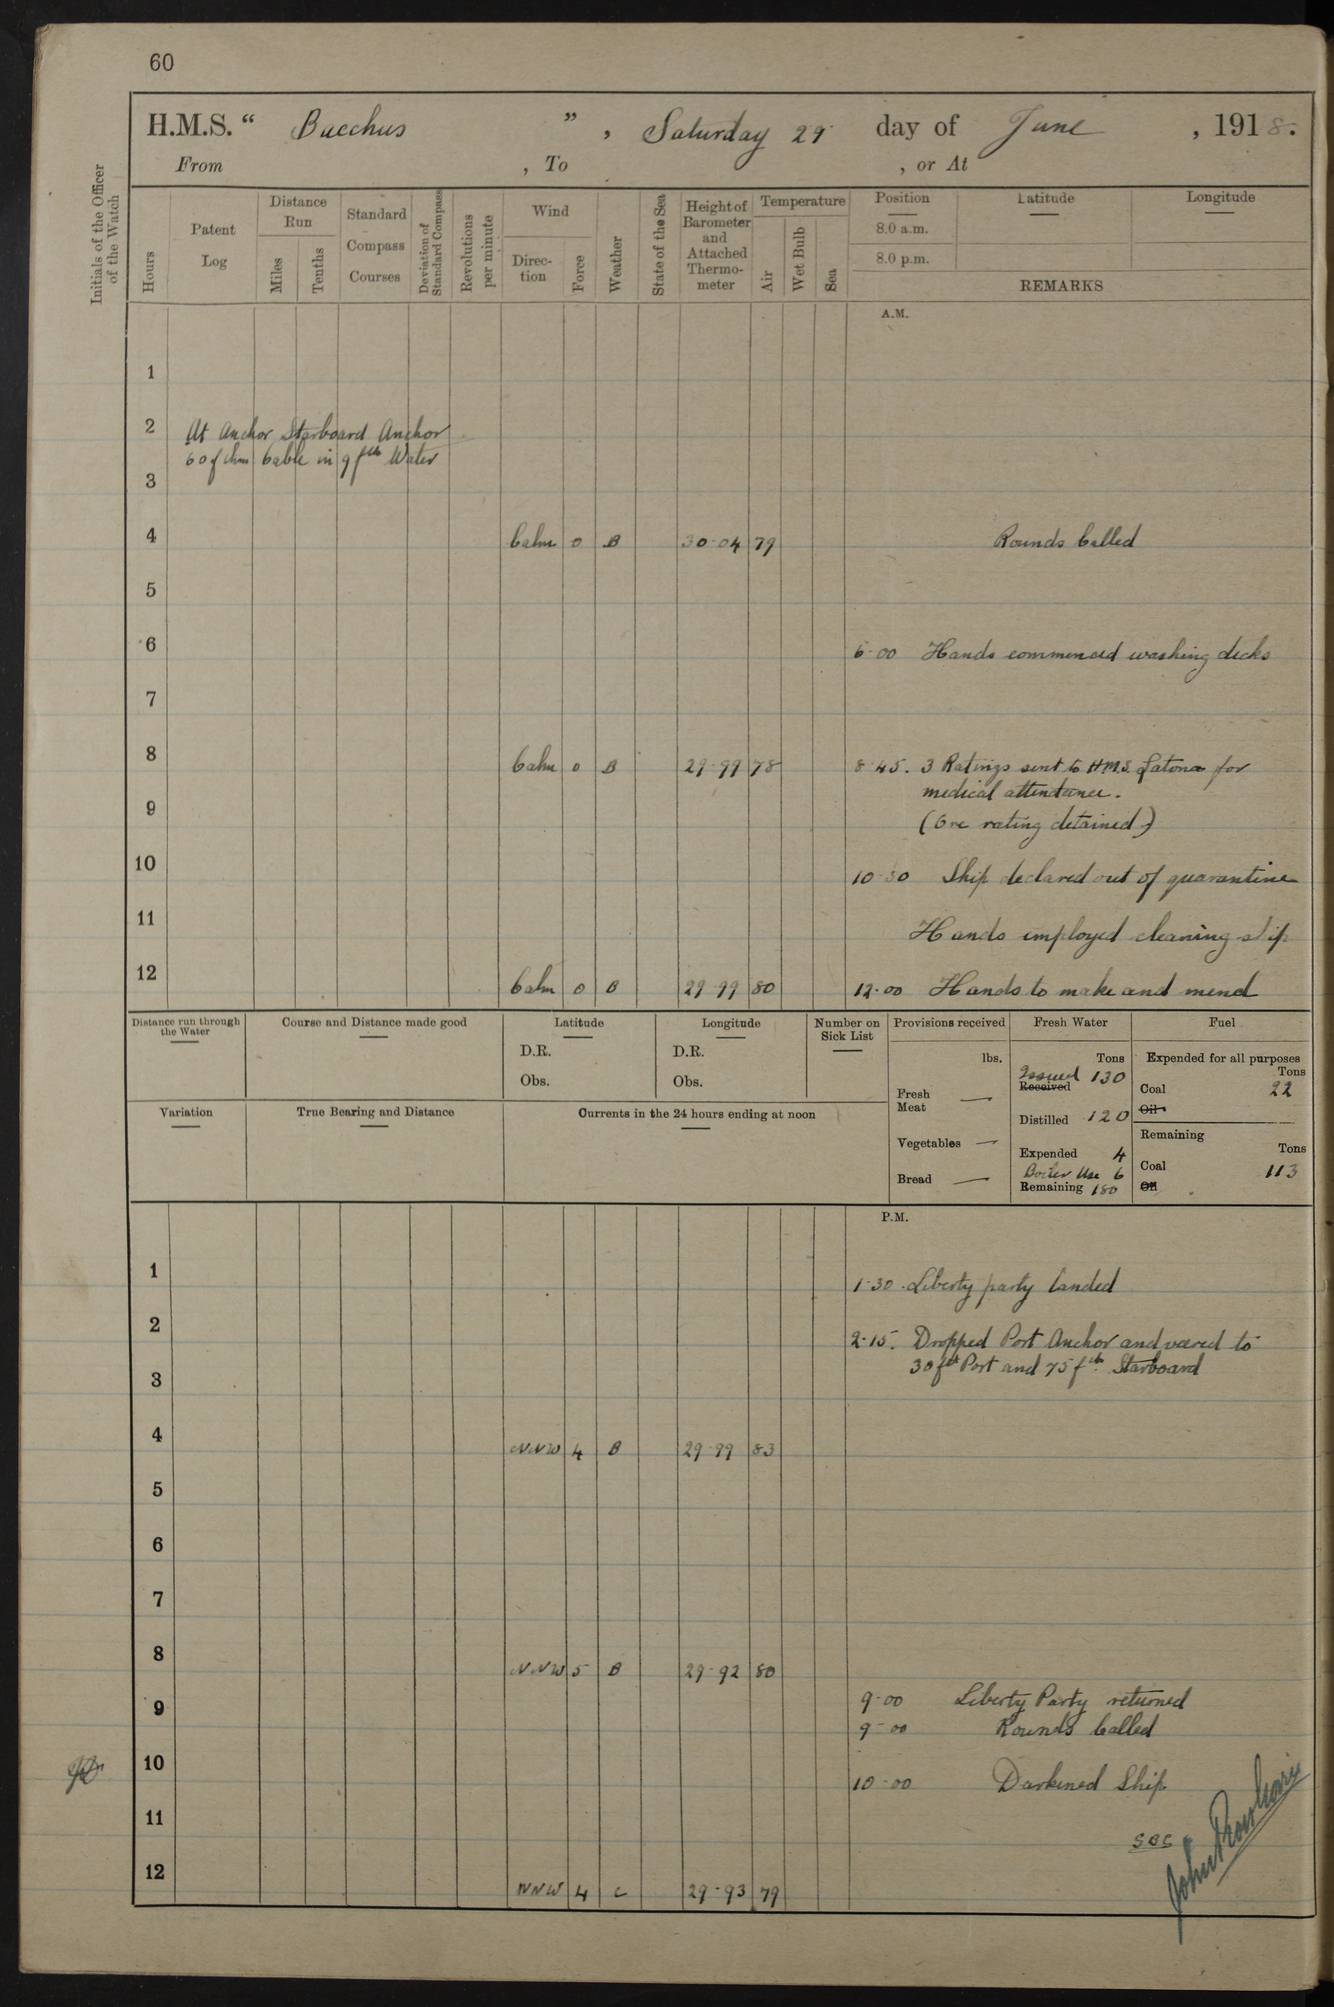 60
H.M.S. “ Bacchus ” , Saturday 29 day of June , 1918.
From , To , or At
Initials of the Officer of the Watch
Hours
Patent Log
Distance Run
Miles
Tenths
Standard Compass Courses
Deviation of Standard Compass
Revolutions per minute
Wind
Direc-tion
Force
Weather
State of the Sea
Height of Barometer and Attached Thermo-meter
Temperature
Air
Wet Bulb
Sea
Position Latitude Longitude
8.0 a.m.
8.0 p.m.
REMARKS
A.M.
1
2 At Anchor Starboard Anchor
60 fthm Cable in 9 fth Water
3
4 Calm 0 B 30-04 79 Rounds Called
5
6 6-00 Hands commenced washing decks
7
8 Calm 0 B 29-99 78 8-45. 3 Ratings sent to H.M.S. Latona for
medical attendance.
9 (One rating detained)
10 10-30 Ship declared out of quarantine
11 Hands employed cleaning ship
12 Calm 0 B 29-99 80 12-00 Hands to make and mend
Distance run through the Water
Course and Distance made good
Latitude
D.R.
Obs.
Longitude
D.R.
Obs.
Number on Sick List
Provisions received
lbs.
Fresh Meat —
Vegetables —
Bread —
Fresh Water
Tons
Issued 130
Received
Distilled 120
Expended 4
Boiler Use 6
Remaining 180
Fuel
Expended for all purposes
Tons
Coal 22
Oil
Remaining
Tons
Coal 113
Oil
Variation
True Bearing and Distance
Currents in the 24 hours ending at noon
P.M.
1 1-30. Liberty party landed
2 2-15. Dropped Port Anchor and veered to
30 fth Port and 75 fth Starboard
3
4 NNW 4 B 29-99 83
5
6
7
8 NNW 5 B 29-92 80
9 9-00 Liberty Party returned
9-00 Rounds Called
10 10-00 Darkened Ship
11
12 NNW 4 C 29-93 79